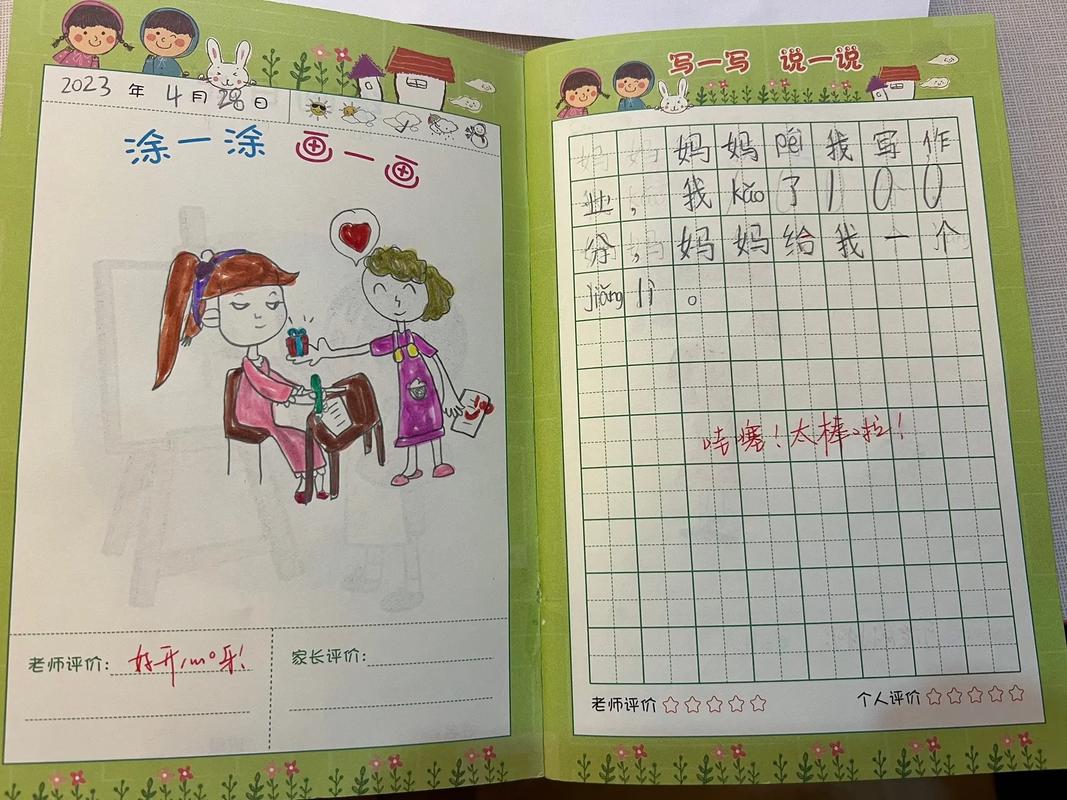 2023 年 4 月 28 日
涂一涂 画一画
老师评价: 好开心呀!
家长评价:
写一写 说一说
妈妈péi我写作
业,我kǎo了100
分,妈妈给我一个
jiǎng lì。
哇塞!太棒啦!
老师评价
个人评价